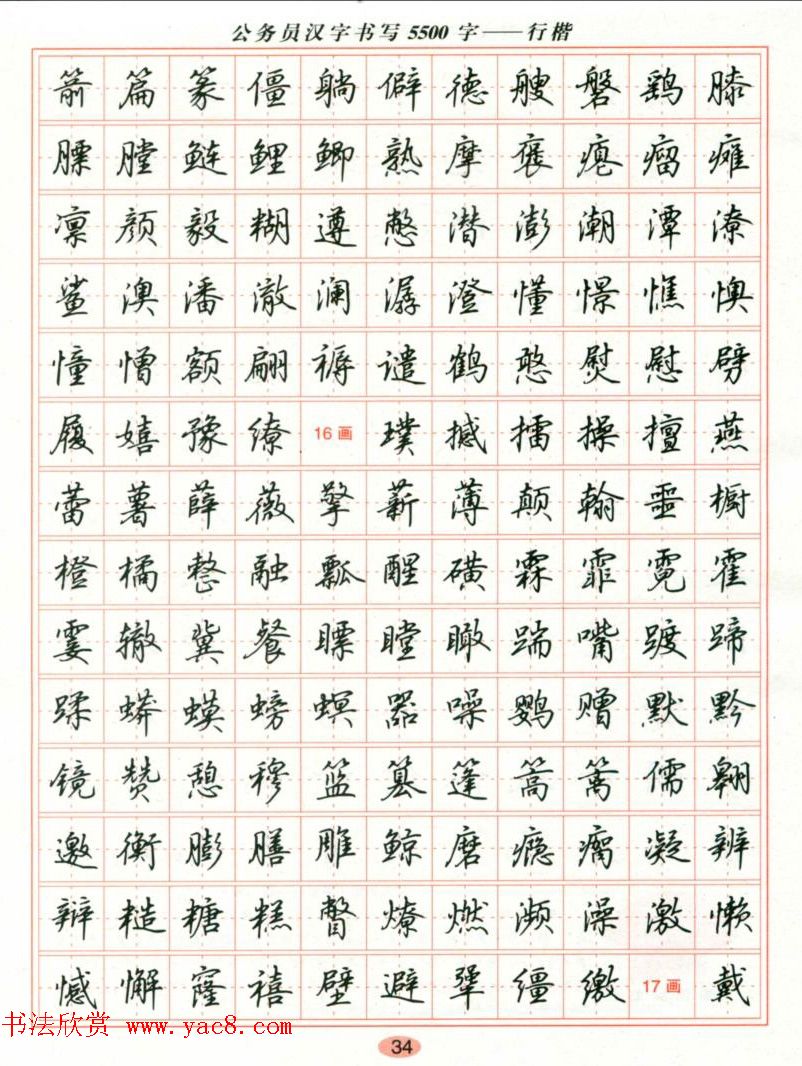 公务员汉字书写5500字——行楷
箭篇篆僵躺僻德艘磐鹞膝
膘膛鲢鲤鲫熟摩褒瘪瘤瘫
凛颜毅糊遵憋潜澎潮潭潦
鲨澳潘澈澜潺澄懂憬憔懊
憧憎额翩褥谴鹤憨熨慰劈
履嬉豫缭16画璞撼擂操擅燕
蕾薯薛薇擎薪薄颠翰噩橱
橙橘整融瓢醒磺霖霏霓霍
霎辙冀餐瞟瞠瞰踹嘴踱蹄
蹂蟒蟆螃螟器噪鹦赠默黔
镜赞憩穆篮篡篷篙篱儒翱
邀衡膨膳雕鲸磨瘾瘸凝辨
辩糙糖糕瞥燎燃濒澡激懒
憾懈窿禧壁避犟缰缴17画戴
书法欣赏 www.yac8.com
34